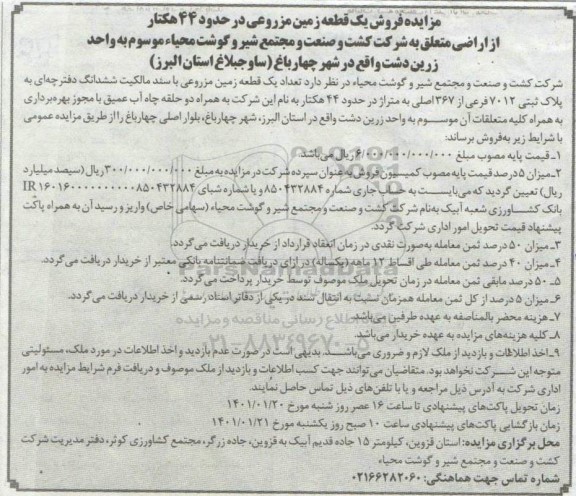 مزایده فروش یک قطعه زمین مزروعی در حدود ۴۴ هکتار
از اراضی متعلق به شرکت کشت و صنعت و مجتمع شیر و گوشت محیاء موسوم به واحد
زرین دشت واقع در شهر چهارباغ (ساوجبلاغ استان البرز)
شرکت کشت و صنعت و مجتمع شیر و گوشت محیاء در نظر دارد تعداد یک قطعه زمین مزروعی با سند مالکیت ششدانگ دفترچه‌ای به
پلاک ثبتی ۷۰۱۲ فرعی از ۳۶۷ اصلی به متراژ در حدود ۴۴ هکتار به نام این شرکت به همراه دو حلقه چاه آب عمیق با مجوز بهره‌برداری
به همراه کلیه متعلقات آن موسوم به واحد زرین دشت واقع در استان البرز، شهر چهارباغ، بلوار اصلی چهارباغ را از طریق مزایده عمومی
با شرایط زیر به فروش برساند:
۱- قیمت پایه مصوب مبلغ ۶/۰۰۰/۰۰۰/۰۰۰/۰۰۰ ریال می‌باشد.
۲- میزان ۵ درصد قیمت پایه مصوب کمیسیون فروش به عنوان سپرده شرکت در مزایده به مبلغ ۳۰۰/۰۰۰/۰۰۰/۰۰۰ ریال (سیصد میلیارد
ریال) تعیین گردید که می‌بایست به حساب جاری شماره ۸۵۰۴۳۲۸۸۴ و یا شماره شبای IR ۱۶۰۱۶۰۰۰۰۰۰۰۰۰۰۸۵۰۴۳۲۸۸۴
بانک کشاورزی شعبه آبیک به‌نام شرکت کشت و صنعت و مجتمع شیر و گوشت محیاء (سهامی خاص) واریز و رسید آن به همراه پاکت
پیشنهاد قیمت تحویل امور اداری شرکت گردد.
۳- میزان ۵۰ درصد ثمن معامله به‌صورت نقدی در زمان انعقاد قرارداد از خریدار دریافت می‌گردد.
۴- میزان ۴۰ درصد ثمن معامله طی اقساط ۱۲ ماهه (یکساله) در ازای دریافت ضمانتنامه بانکی معتبر از خریدار دریافت می‌گردد.
۵- ۵ درصد مابقی ثمن معامله در زمان تحویل ملک موصوف توسط خریدار پرداخت می‌گردد.
۶- میزان ۵ درصد از کل ثمن معامله همزمان نسبت به انتقال سند در یکی از دفاتر اسناد رسمی از خریدار دریافت می‌گردد.
۷- هزینه محضر بالمناصفه به عهده طرفین می‌باشد.
۸- کلیه هزینه‌های مزایده به عهده خریدار می‌باشد.
۹- اخذ اطلاعات و بازدید از ملک لازم و ضروری می‌باشد. بدیهی است در صورت عدم بازدید و اخذ اطلاعات در مورد ملک، مسئولیتی
متوجه این شرکت نخواهد بود. متقاضیان می‌توانند جهت کسب اطلاعات و بازدید از ملک موصوف و دریافت فرم شرایط مزایده به امور
اداری شرکت به آدرس ذیل مراجعه و یا با تلفن‌های ذیل تماس حاصل نمایند.
زمان تحویل پاکت‌های پیشنهادی تا ساعت ۱۶ عصر روز شنبه مورخ ۱۴۰۱/۰۱/۲۰
زمان بازگشایی پاکت‌های پیشنهادی ساعت ۱۰ صبح روز یکشنبه مورخ ۱۴۰۱/۰۱/۲۱
محل برگزاری مزایده: استان قزوین، کیلومتر ۱۵ جاده قدیم آبیک به قزوین، جاده زرگر، مجتمع کشاورزی کوثر، دفتر مدیریت شرکت
کشت و صنعت و مجتمع شیر و گوشت محیاء
شماره تماس جهت هماهنگی: ۰۲۱۶۶۲۸۲۰۶۰
ParsNamadData
۰۲۱-۸۸۳۴۹۶۷۰-۵